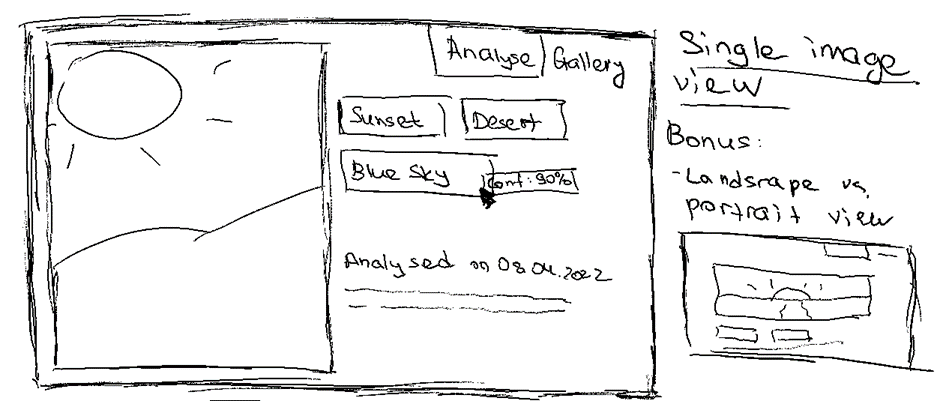 Analyse Gallery
Sunset Desert
Blue Sky Conf: 90%
Analysed on 08.04.2022
Single image
view
Bonus:
- Landsrape vs.
portrait view